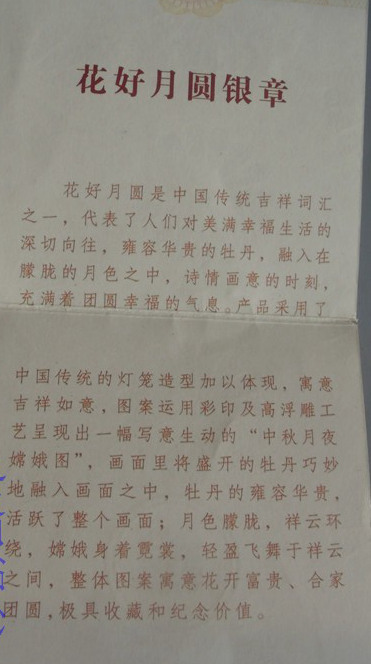 花好月圆银章
花好月圆是中国传统吉祥词汇
之一，代表了人们对美满幸福生活的
深切向往，雍容华贵的牡丹，融入在
朦胧的月色之中，诗情画意的时刻，
充满着团圆幸福的气息。产品采用了
中国传统的灯笼造型加以体现，寓意
吉祥如意，图案运用彩印及高浮雕工
艺呈现出一幅写意生动的“中秋月夜
嫦娥图”，画面里将盛开的牡丹巧妙
地融入画面之中，牡丹的雍容华贵，
活跃了整个画面；月色朦胧，祥云环
绕，嫦娥身着霓裳，轻盈飞舞于祥云
之间，整体图案寓意花开富贵、合家
团圆,极具收藏和纪念价值。